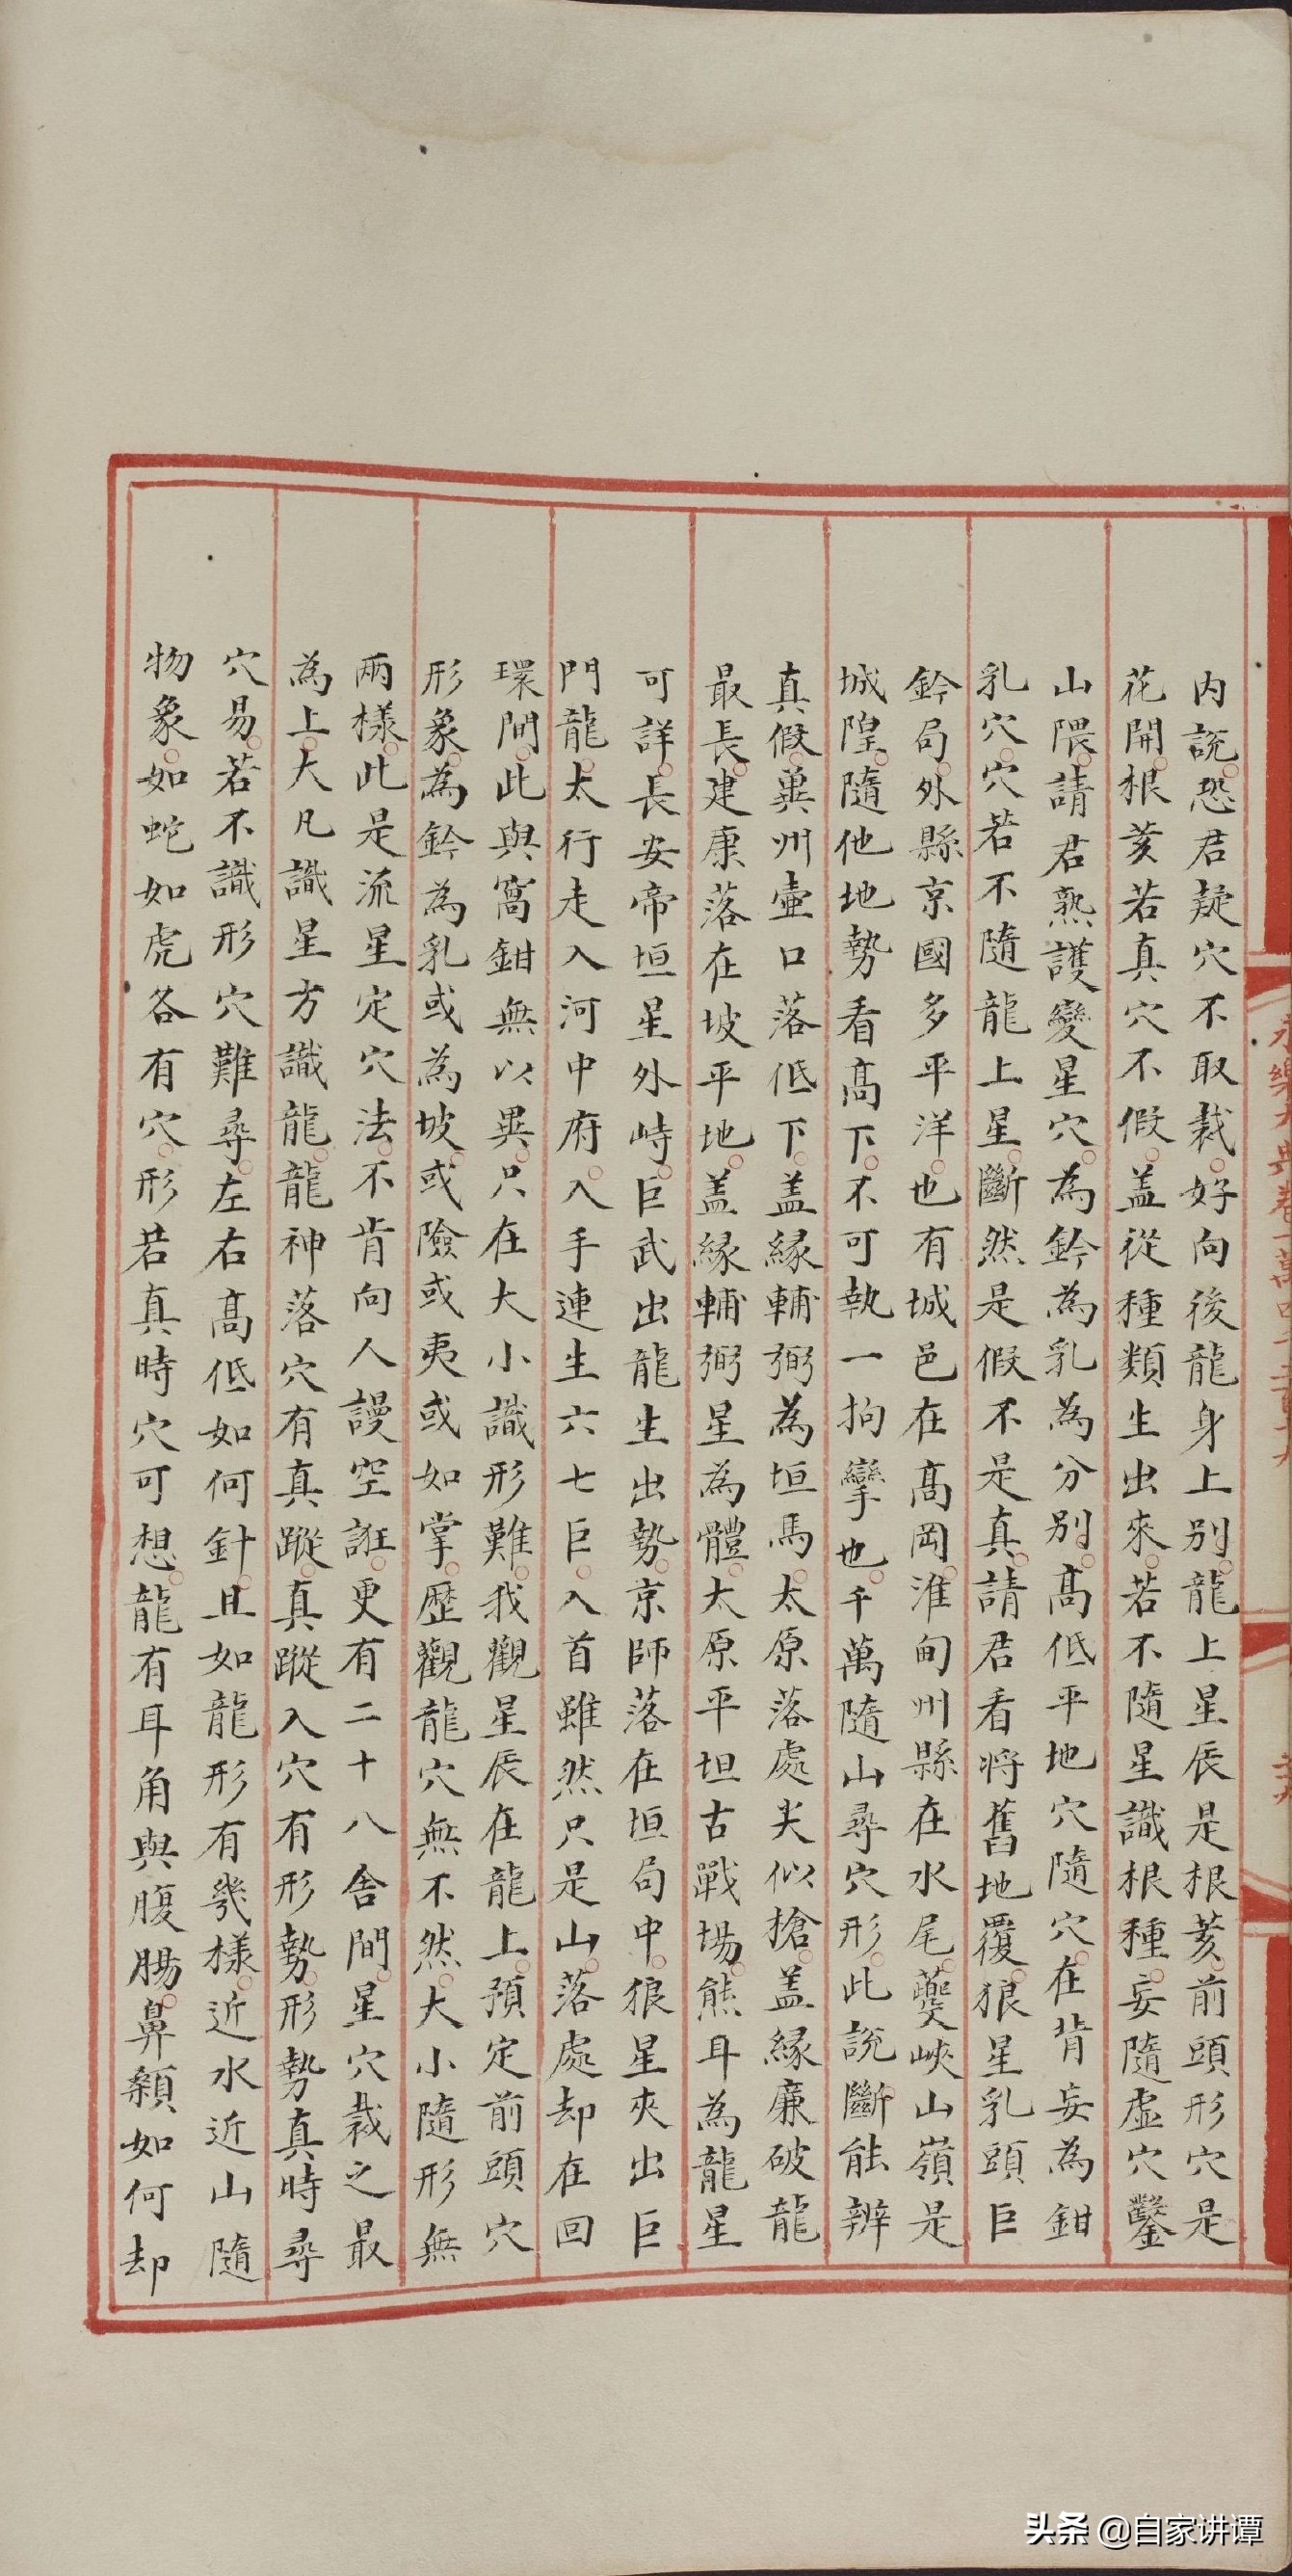 内説恐君疑穴不取裁好向後龍身上别龍上星辰是根荄前頭形穴是
花開根荄若真穴不假盖從種類生出來若不隨星識根種妄隨虛穴鑿
山隈請君熟護變星穴為鈐為乳為分别髙低平地穴隨穴在肯妄為鉗
乳穴穴若不隨龍上星斷然是假不是真請君看将舊地覆狼星乳頭巨
鈐局外縣京國多平洋也有城邑在髙岡淮甸州縣在水尾夔峽山嶺是
城隍隨他地勢看髙下不可執一拘攣也千萬隨山尋穴形此説斷能辨
真假冀州壺口落低下盖縁輔弼為垣馬太原落處尖似槍盖縁廉破龍
最長建康落在坡平地盖縁輔弼星為體太原平坦古戰場熊耳為龍星
可詳長安帝垣星外峙巨武出龍生出勢京師落在垣局中狼星夾出巨
門龍太行走入河中府入手連生六七巨入首雖然只是山落處却在回
環間此與窩鉗無以異只在大小識形難我觀星辰在龍上預定前頭穴
形象為鈐為乳或為坡或險或夷或如掌歷觀龍穴無不然大小隨形無
兩樣此是流星定穴法不肯向人謾空誑更有二十八舍間星穴裁之最
為上大凡識星方識龍龍神落穴有真蹤真蹤入穴有形勢形勢真時尋
穴易若不識形穴難尋左右髙低如何針且如龍形有幾樣近水近山隨
物象如蛇如虎各有穴形若真時穴可想龍有耳角與腹腸鼻顙如何却
永樂大典卷一萬四千
头条 @自家讲谭